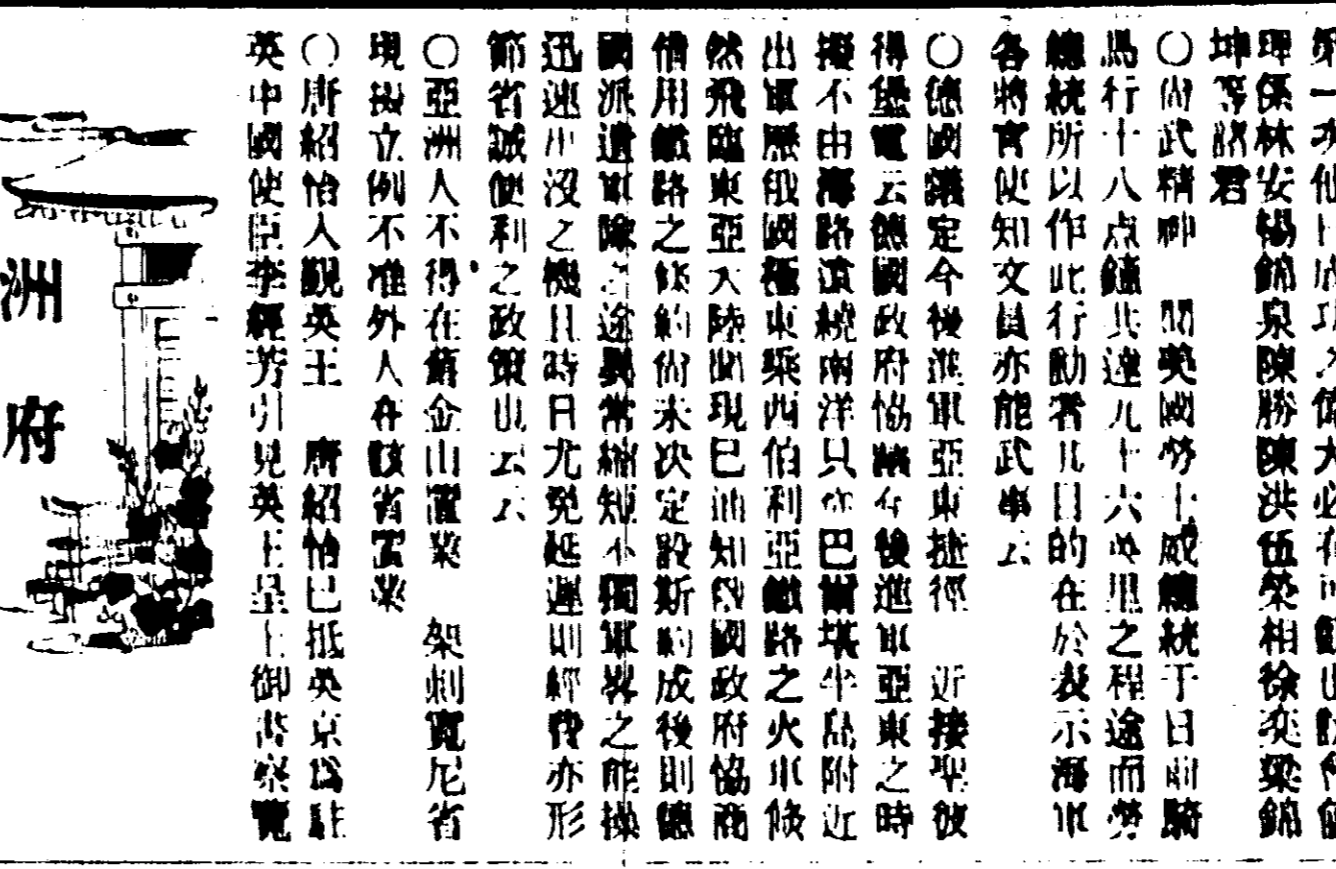 理係林安楊錦泉陳勝陳洪伍榮相徐奕梁錦
坤等諸君
〇尚武精神　聞英國勞士威總統于日前騎
馬行十八点鐘共達九十六英里之程途而勞
總統所以作此行動者其目的在於表示海軍
各將官使知文員亦能武事云
〇德國議定今後進軍亞東捷徑　近接聖彼
得堡電云德國政府恊議在後進軍亞東之時
擬不由海路遠繞兩洋只在巴爾堪半島附近
出軍歷俄國極東乘西伯利亞鐵路之火車倏
然飛臨東亞大陸出現已知俄國政府協商
借用鐵路之條約尚未决定設斯約成後則德
國派遣軍隊之途異常縮短不獨軍界之能操
迅速出沒之機且時日尤免延遲則經費亦形
節省誠便利之政策也云云
〇亞洲人不得在舊金山置業　架利寬尼省
現擬立例不准外人在該省置業
〇唐紹怡入覲英王　唐紹怡已抵英京為駐
英中國使臣李經芳引見英王呈上御書察覽
洲府